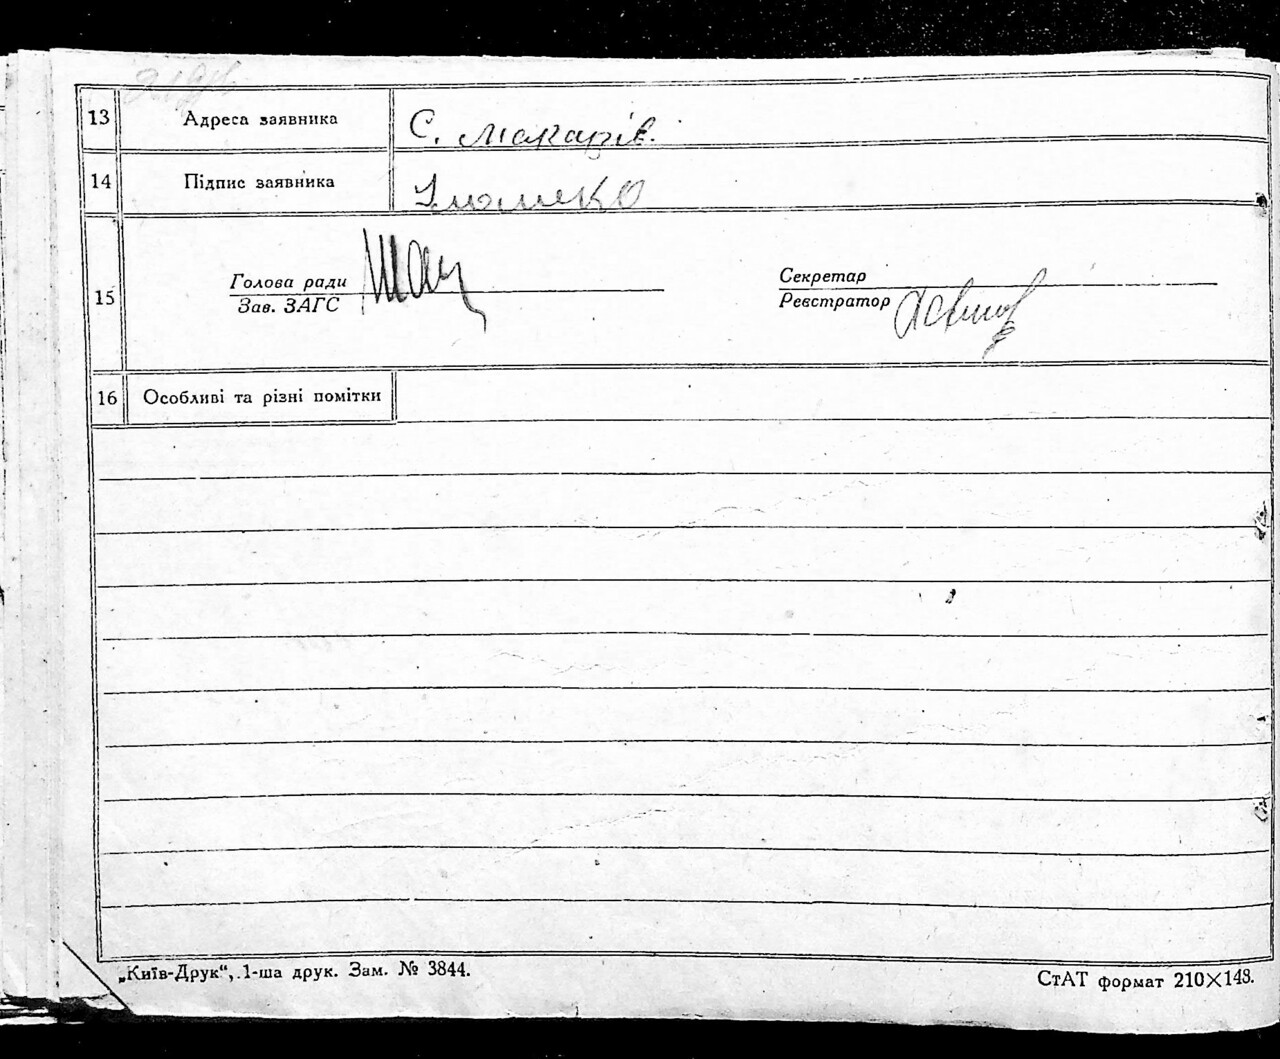 13 Адреса заявника С. Макарів.
14 Підпис заявника
15 Голова ради Секретар
Зав. ЗАГС Реєстратор
16 Особливі та різні помітки
„Київ-Друк“, 1-ша друк. Зам. № 3844. СтАТ формат 210×148.